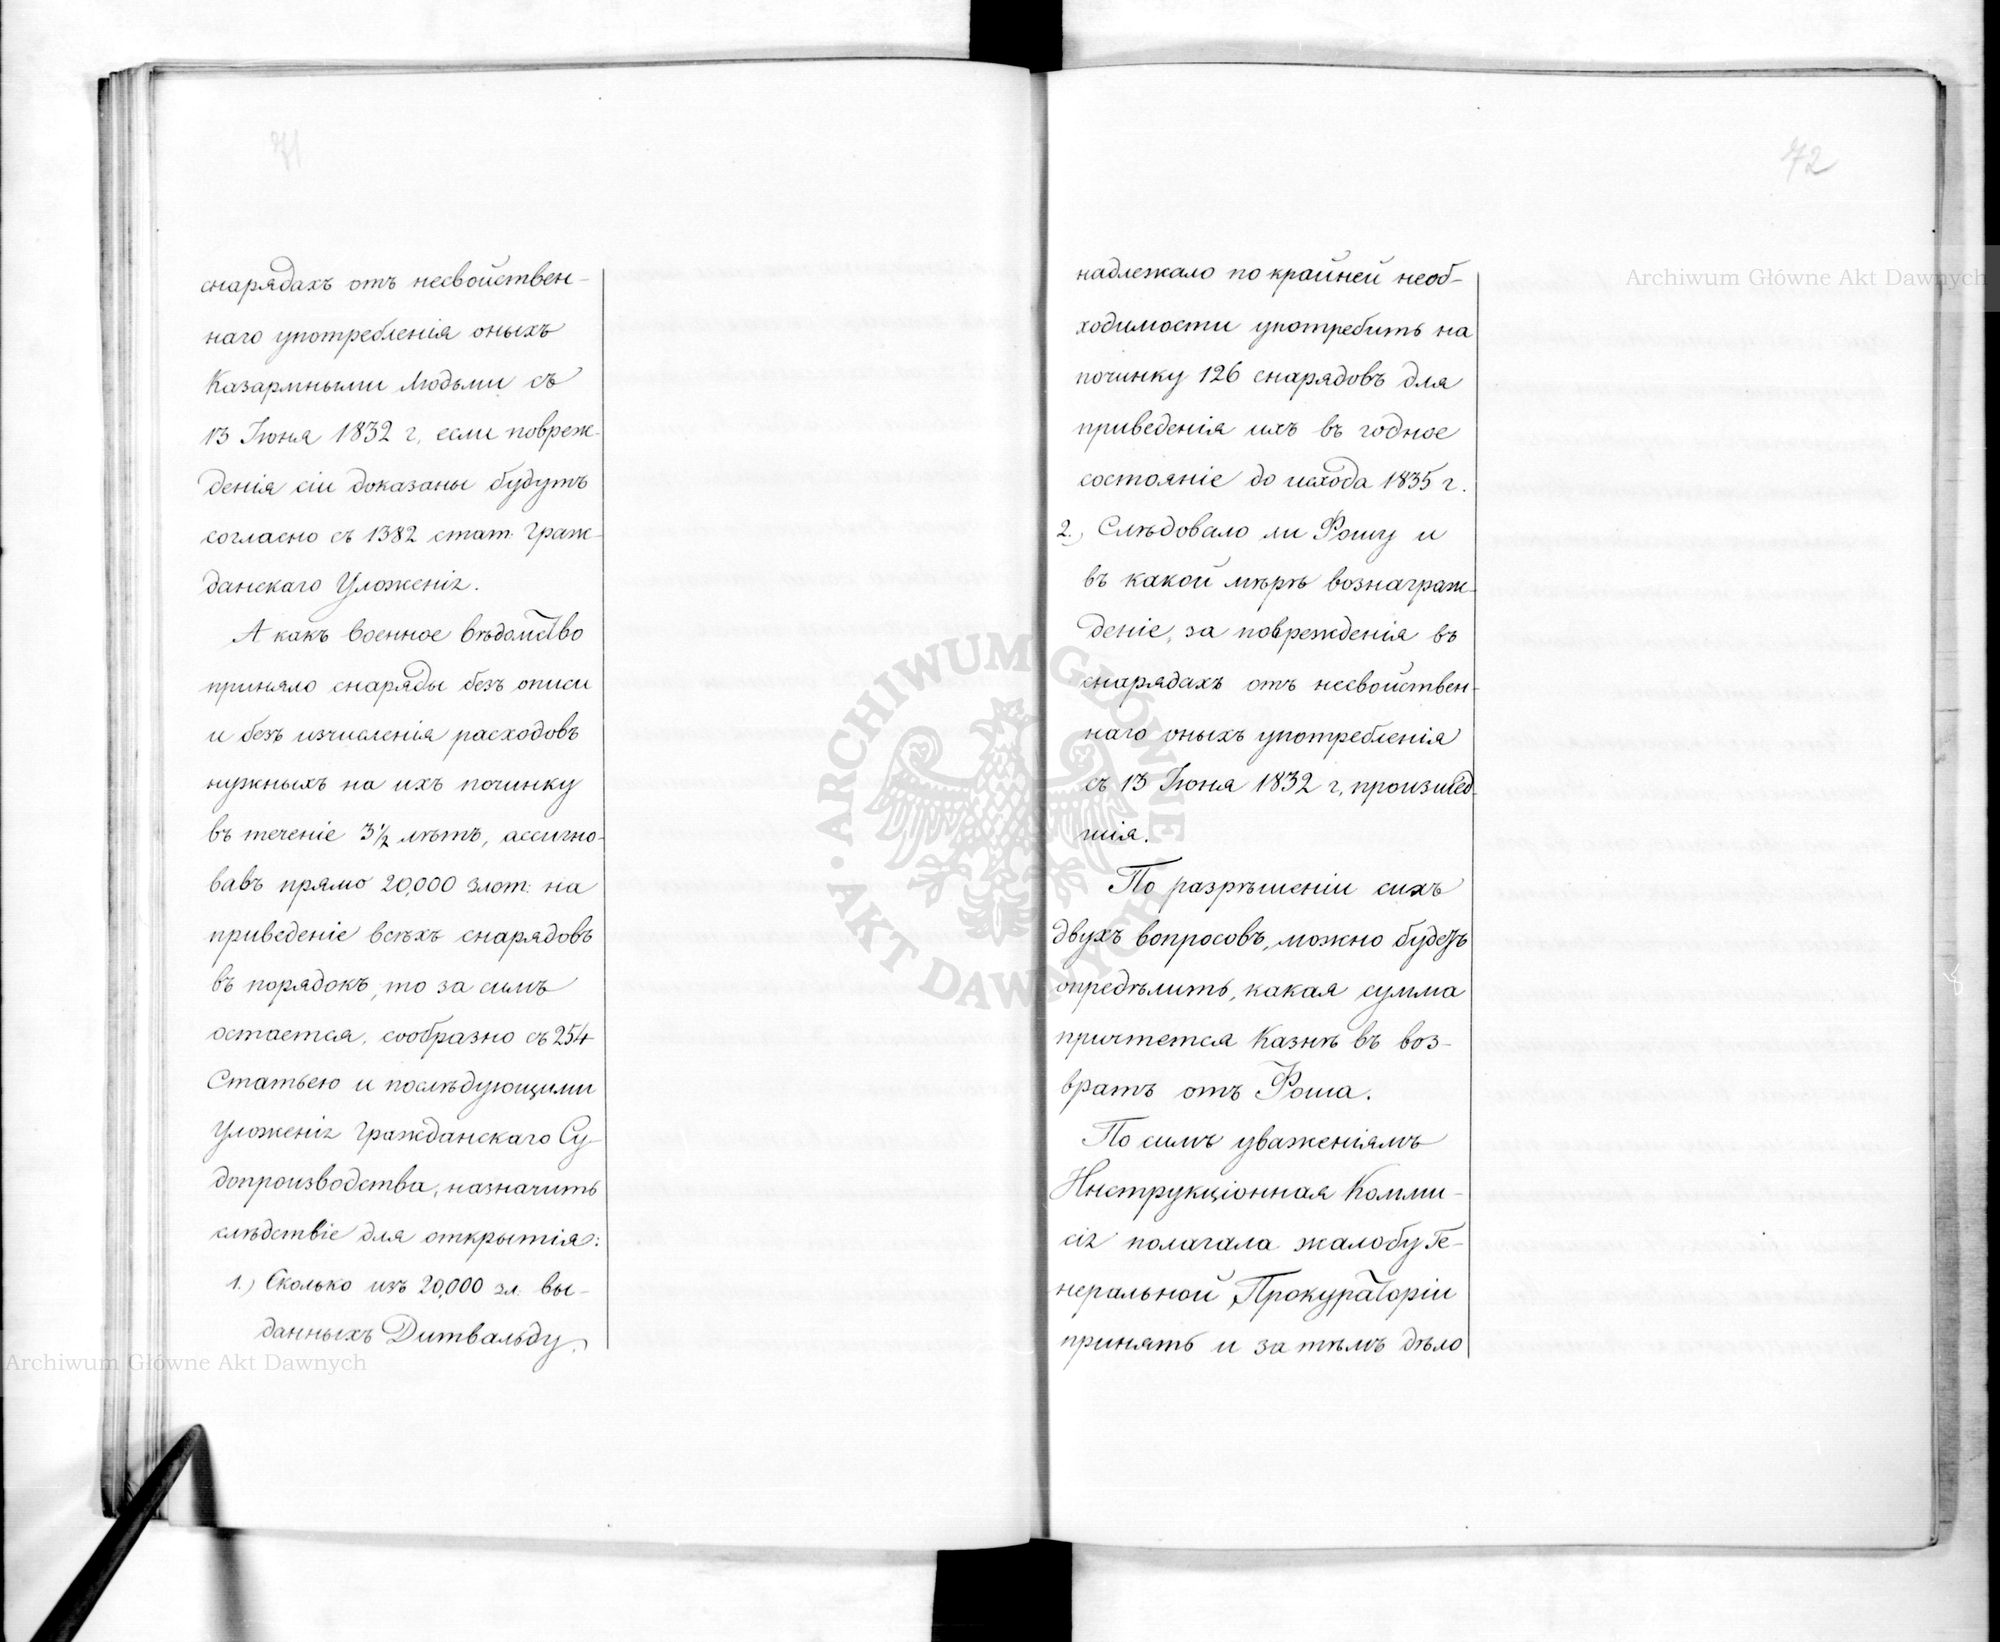 71
снарядахъ отъ несвойствен-
наго употребленія оныхъ
Казармными Людьми съ
13 Іюня 1832 г, если повреж-
денія сіи доказаны будутъ
согласно съ 1382 стат: Граж-
данскаго Уложенія.
А какъ военное вѣдомство
приняло снаряды безъ описи
и безъ изчисленія расходовъ
нужныхъ на ихъ починку
въ теченіе 3½ лѣтъ, ассигно-
вавъ прямо 20,000 злот: на
приведеніе всѣхъ снарядовъ
въ порядокъ, то за симъ
остается, сообразно съ 254
Статьею и послѣдующими
Уложенія Гражданскаго Су-
допроизводства, назначить
слѣдствіе для открытія:
1.) Сколько изъ 20,000 зл: вы-
данныхъ Дитвальду,
72
надлежало по крайней необ-
ходимости употребить на
починку 126 снарядовъ для
приведенія ихъ въ годное
состояніе до исхода 1835 г.
2.) Слѣдовало ли Рошу и
въ какой мѣрѣ вознаграж-
деніе, за поврежденія въ
снарядахъ отъ несвойствен-
наго оныхъ употребленія
съ 13 Іюня 1832 г, произшед-
шія.
По разрѣшеніи сихъ
двухъ вопросовъ, можно будетъ
опредѣлить, какая сумма
причтется Казнѣ въ воз-
вратъ отъ Роша.
По симъ уваженіямъ
Инструкціонная Комми-
сія полагала жалобу Ге-
неральной Прокураторіи
принять и за тѣмъ дѣло
Archiwum Główne Akt Dawnych
Archiwum Główne Akt Dawnych
ARCHIWUM GŁÓWNE AKT DAWNYCH